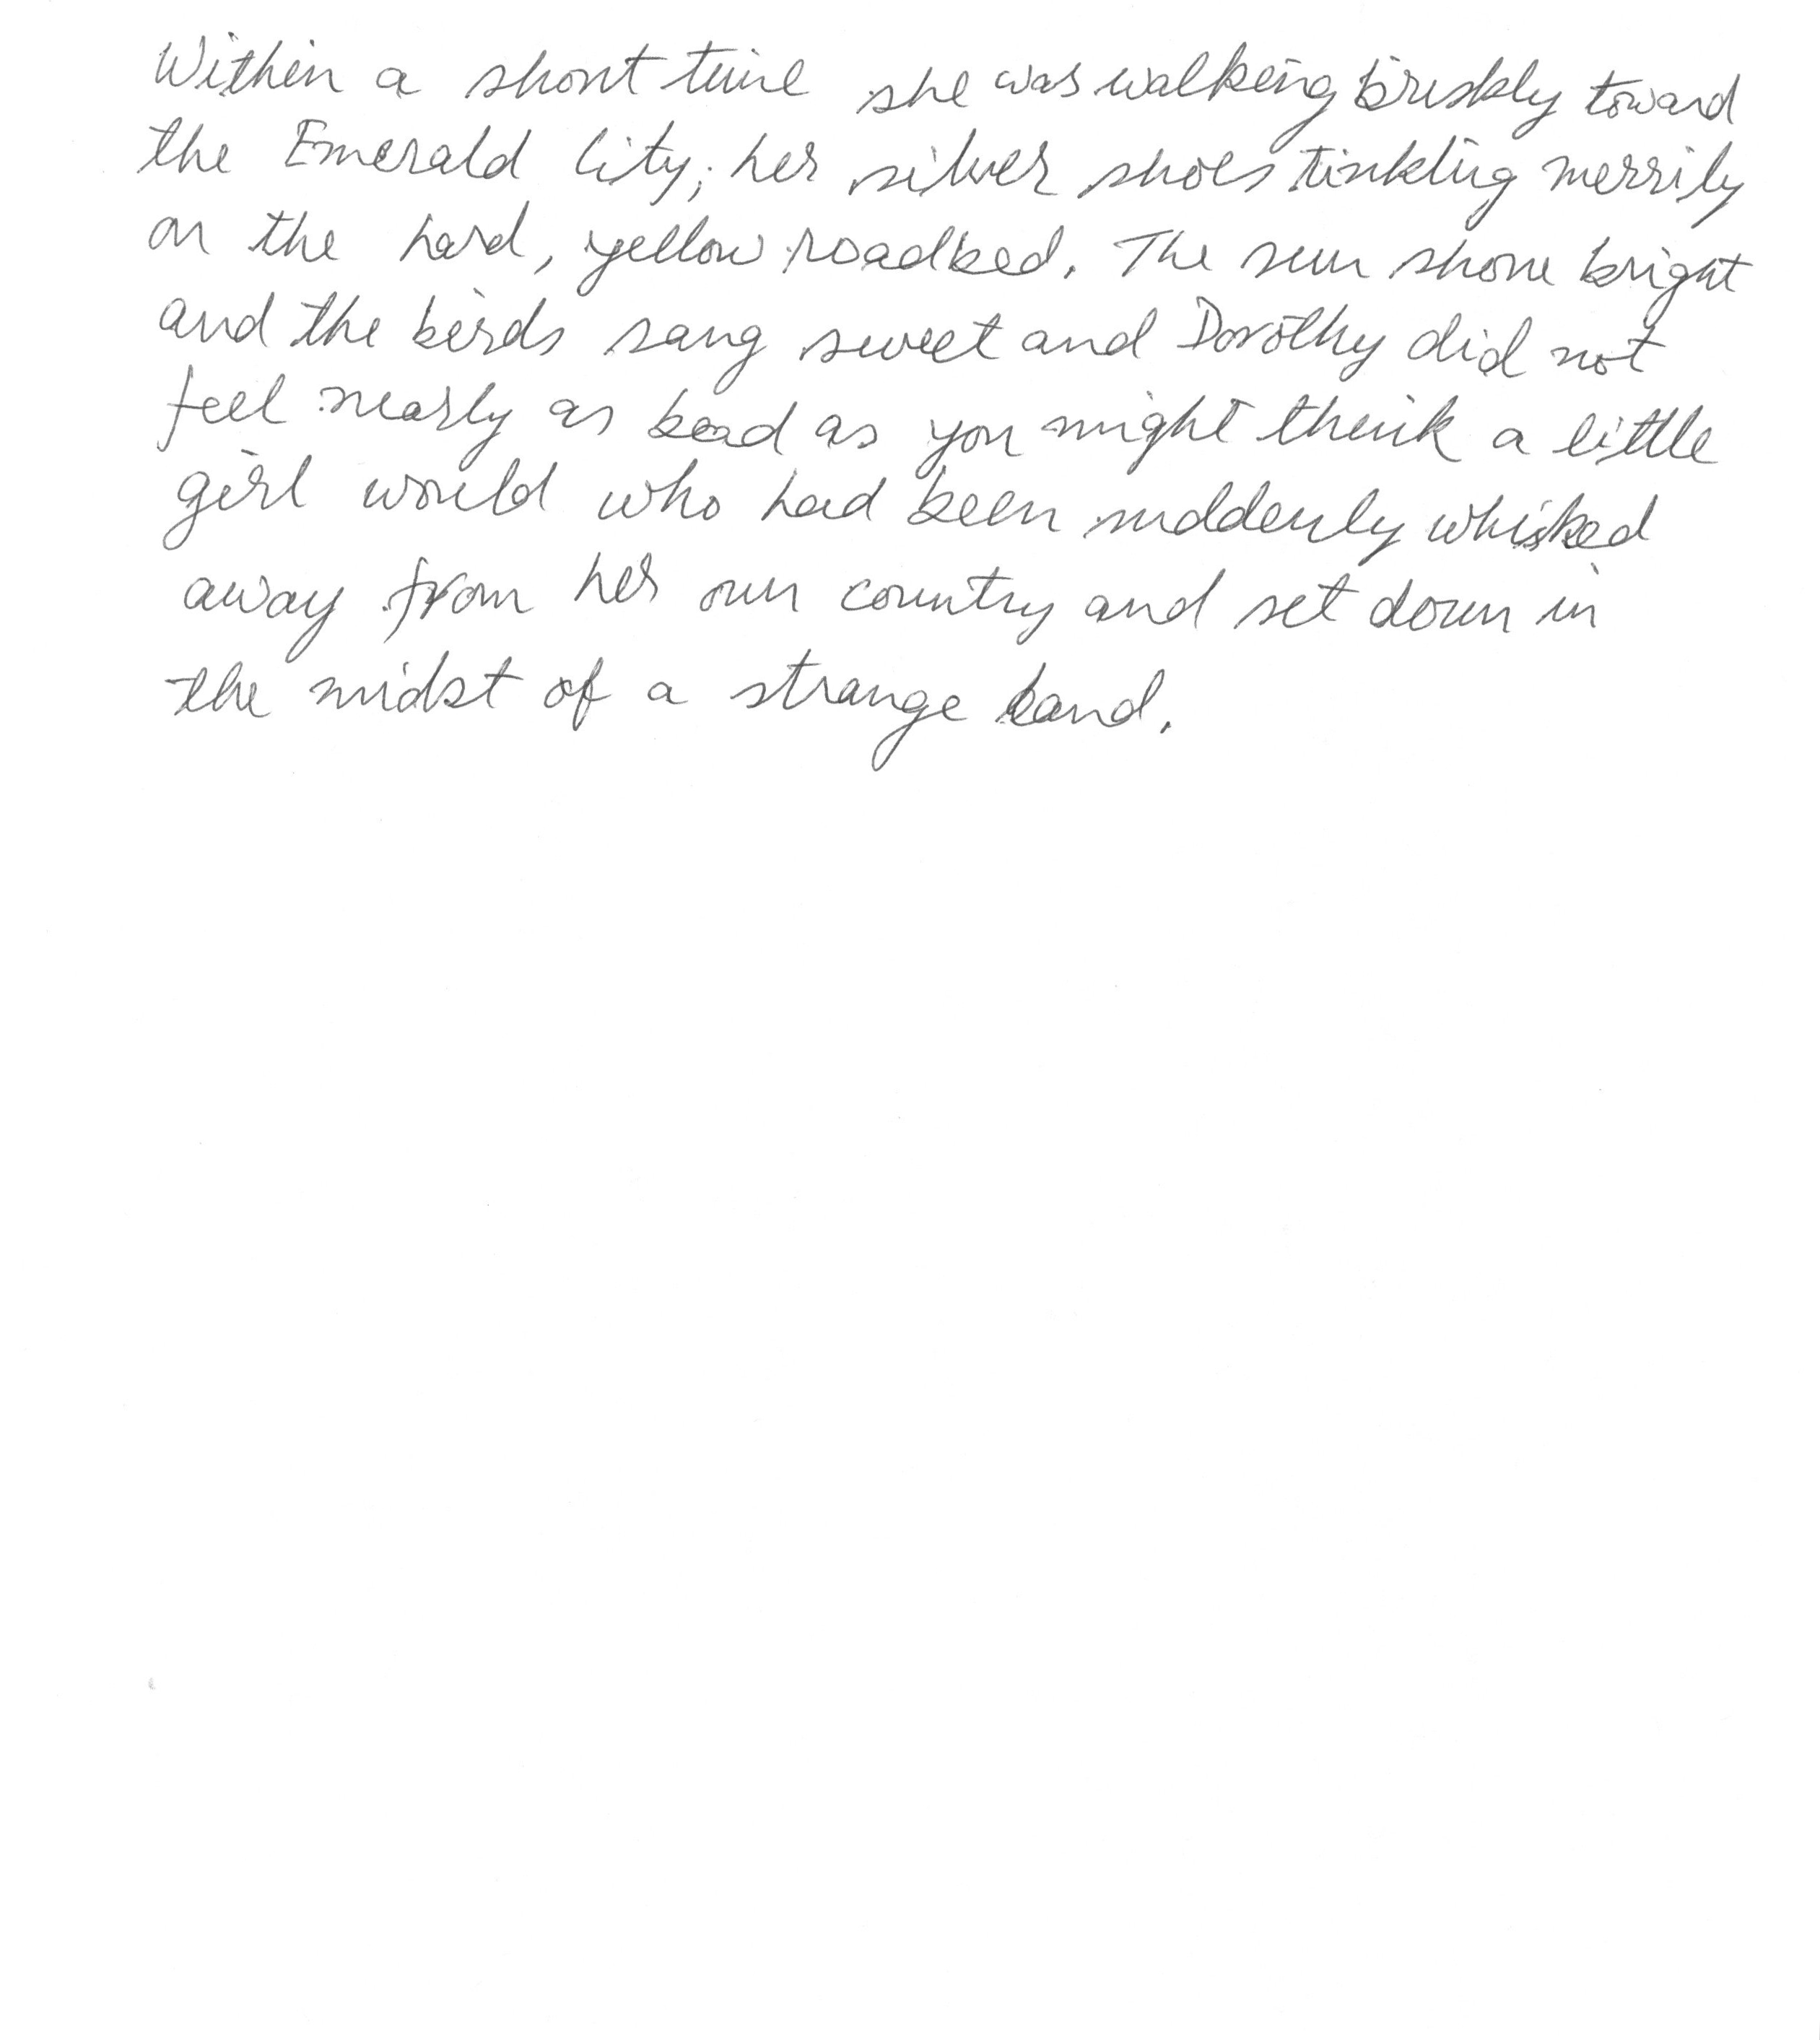 Within a short time she was walking briskly toward
the Emerald City; her silver shoes tinkling merrily
on the hard, yellow roadbed. The sun shone bright
and the birds sang sweet and Dorothy did not
feel nearly as bad as you might think a little
girl would who had been suddenly whisked
away from her own country and set down in
the midst of a strange land.